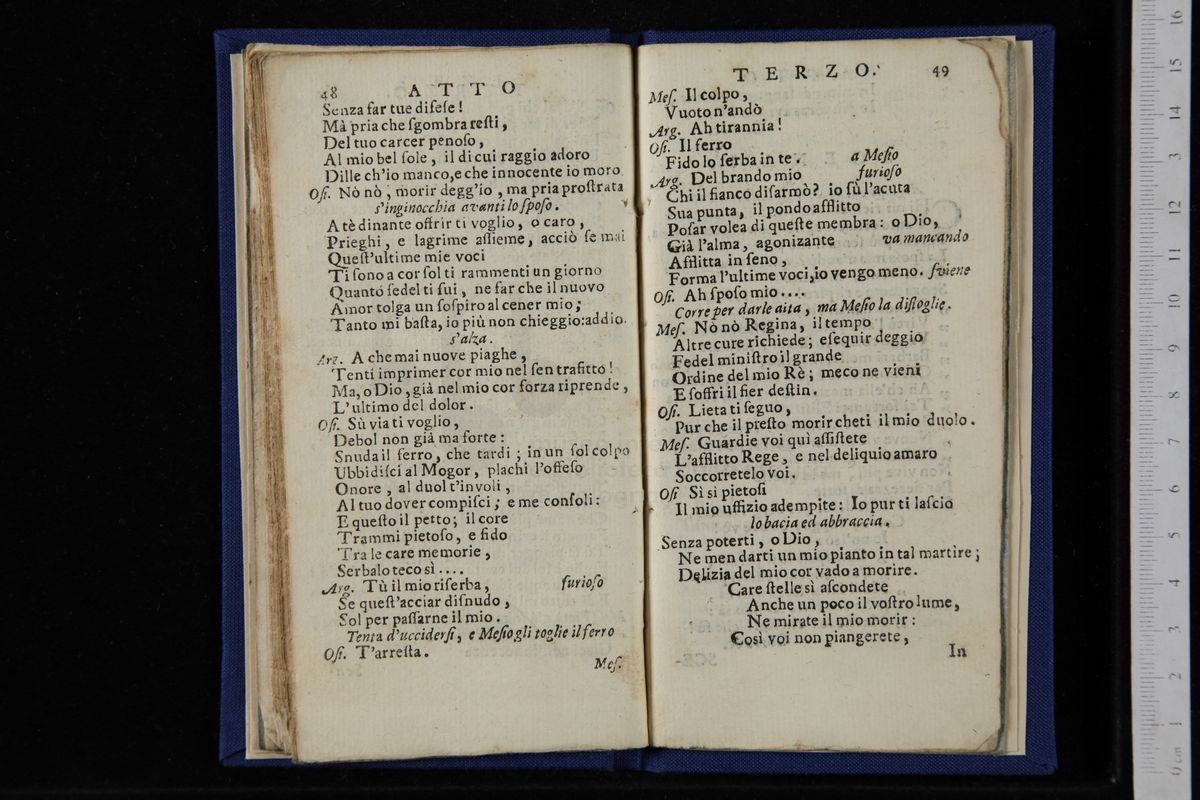 48 ATTO
Senza far tue difeſe!
Mà pria che ſgombra reſti,
Del tuo carcer penoſo,
Al mio bel ſole, il di cui raggio adoro
Dille ch'io manco, e che innocente io moro
Oſi. Nò nò, morir degg'io, ma pria proſtrata
s'inginocchia avanti lo ſpoſo.
A tè dinante offrir ti voglio, o caro,
Prieghi, e lagrime aſſieme, acciò ſe mai
Queſt'ultime mie voci
Ti ſono a cor ſol ti rammenti un giorno
Quanto fedel ti fui, ne far che il nuovo
Amor tolga un ſoſpiro al cener mio;
Tanto mi baſta, io più non chieggio: addio.
s'alza.
Arg. A che mai nuove piaghe,
Tenti imprimer cor mio nel ſen trafitto!
Ma, o Dio, già nel mio cor forza riprende,
L'ultimo del dolor.
Oſi. Sù via ti voglio,
Debol non già ma forte:
Snuda il ferro, che tardi; in un ſol colpo
Ubbidiſci al Mogor, plachi l'offeſo
Onore, al duol t'involi,
Al tuo dover compiſci; e me conſoli:
E queſto il petto; il core
Trammi pietoſo, e fido
Tra le care memorie,
Serbalo teco sì....
Arg. Tù il mio riſerba, furioſo
Se queſt'acciar diſnudo,
Sol per paſſarne il mio.
Tenta d'ucciderſi, e Meſio gli toglie il ferro
Oſi. T'arreſta.
Meſ.
TERZO. 49
Meſ. Il colpo,
Vuoto n'andò
Arg. Ah tirannia!
Oſi. Il ferro
Fido lo ſerba in te. a Meſio
Arg. Del brando mio furioſo
Chi il fianco diſarmò? io sù l'acuta
Sua punta, il pondo afflitto
Poſar volea di queſte membra: o Dio,
Già l'alma, agonizante va mancando
Afflitta in ſeno,
Forma l'ultime voci, io vengo meno. ſviene
Oſi. Ah ſpoſo mio....
Corre per darle aita, ma Meſio la diſtoglie.
Meſ. Nò nò Regina, il tempo
Altre cure richiede; eſequir deggio
Fedel miniſtro il grande
Ordine del mio Rè; meco ne vieni
E ſoffri il fier deſtin.
Oſi. Lieta ti ſeguo,
Pur che il preſto morir cheti il mio duolo.
Meſ. Guardie voi quì aſſiſtete
L'afflitto Rege, e nel deliquio amaro
Soccorretelo voi.
Oſi Sì sì pietoſi
Il mio uffizio adempite: Io pur ti laſcio
lo bacia ed abbraccia.
Senza poterti, o Dio,
Ne men darti un mio pianto in tal martire;
Delizia del mio cor vado a morire.
Care ſtelle sì aſcondete
Anche un poco il voſtro lume,
Ne mirate il mio morir:
Così voi non piangerete,
In
16
15
14
13
12
11
10
9
8
7
6
5
4
3
2
1
0 cm